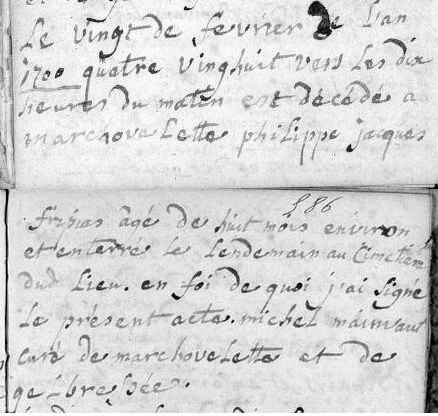 Le vingt de fevrier de l'an
1700 quatre vinghuit vers les dix
heures du maten est décédé a
marchovelette philippe jacques
186
fripias âgé de huit mois environ
et enterré le lendemain au Cimetiere
dud lieu. en foi de quoi j'ai signé
le présent acte. michel
curé de marchovelette et de
gelbressée.